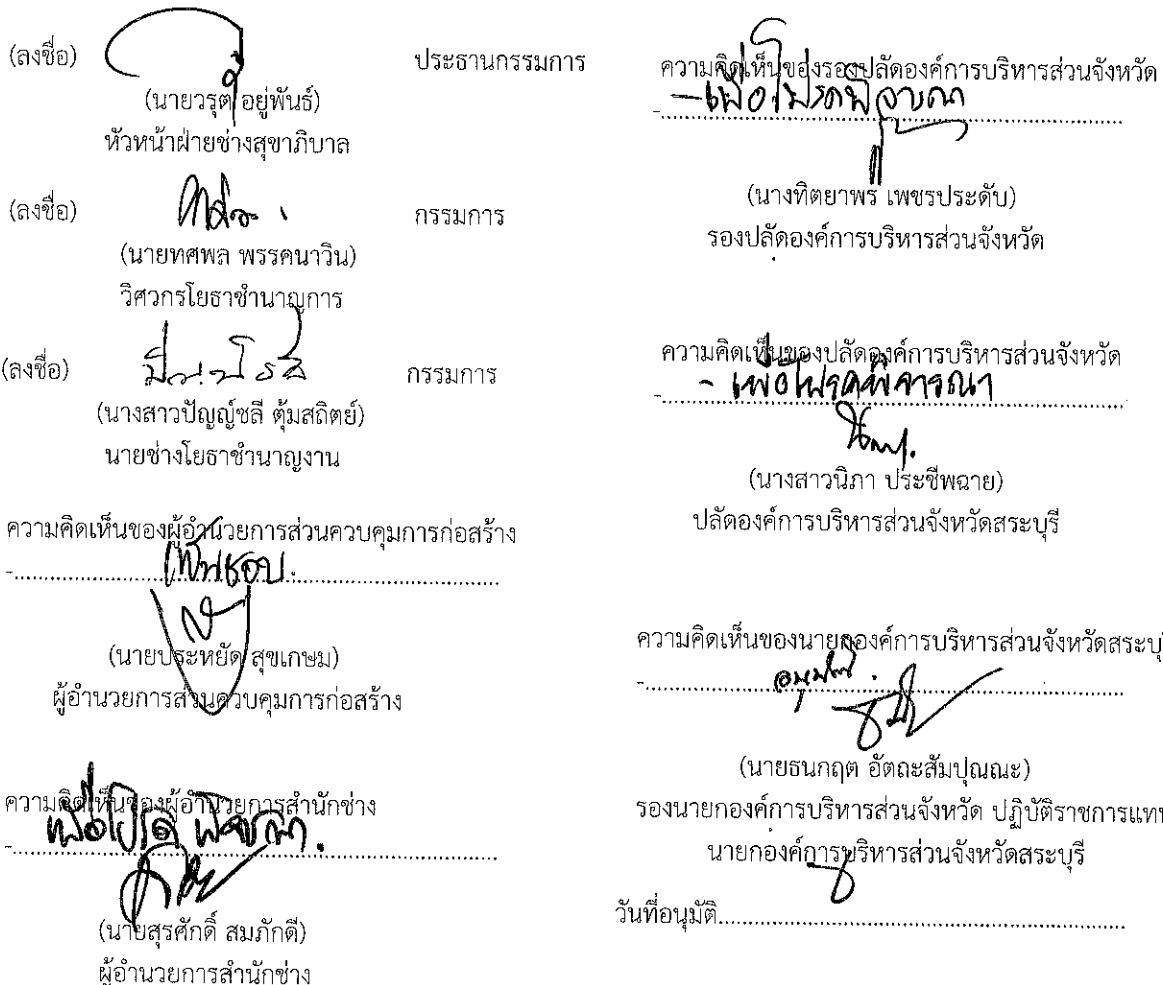 (ลงชื่อ) ประธานกรรมการ
(นายวรุตม์ อยู่พันธ์)
หัวหน้าฝ่ายช่างสุขาภิบาล
(ลงชื่อ) กรรมการ
(นายทศพล พรรคนาวิน)
วิศวกรโยธาชำนาญการ
(ลงชื่อ) กรรมการ
(นางสาวปัญญ์ชลี ตุ้มสถิตย์)
นายช่างโยธาชำนาญงาน
ความคิดเห็นของผู้อำนวยการส่วนควบคุมการก่อสร้าง
- เห็นชอบ
(นายประหยัด สุขเกษม)
ผู้อำนวยการส่วนควบคุมการก่อสร้าง
ความคิดเห็นของผู้อำนวยการสำนักช่าง
- เพื่อโปรดพิจารณา
(นายสุรศักดิ์ สมภักดี)
ผู้อำนวยการสำนักช่าง
ความคิดเห็นของรองปลัดองค์การบริหารส่วนจังหวัด
- เพื่อโปรดพิจารณา
(นางทิตยาพร เพชรประดับ)
รองปลัดองค์การบริหารส่วนจังหวัด
ความคิดเห็นของปลัดองค์การบริหารส่วนจังหวัด
- เพื่อโปรดพิจารณา
(นางสาวนิภา ประชีพฉาย)
ปลัดองค์การบริหารส่วนจังหวัดสระบุรี
ความคิดเห็นของนายกองค์การบริหารส่วนจังหวัดสระบุ
- อนุมัติ
(นายธนกฤต อัตถะสัมปุณณะ)
รองนายกองค์การบริหารส่วนจังหวัด ปฏิบัติราชการแทน
นายกองค์การบริหารส่วนจังหวัดสระบุรี
วันที่อนุมัติ